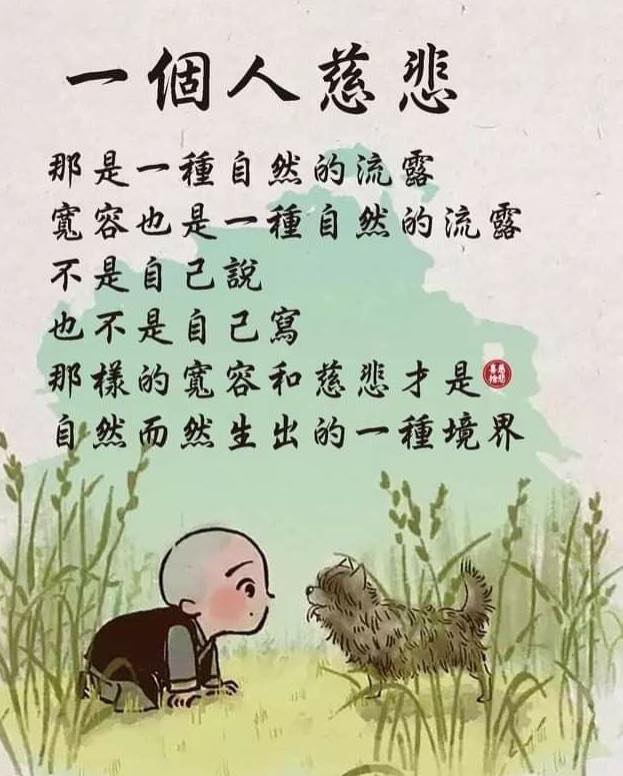 一個人慈悲
那是一種自然的流露
寬容也是一種自然的流露
不是自己說
也不是自己寫
那樣的寬容和慈悲才是
自然而然生出的一種境界
慈悲
喜捨